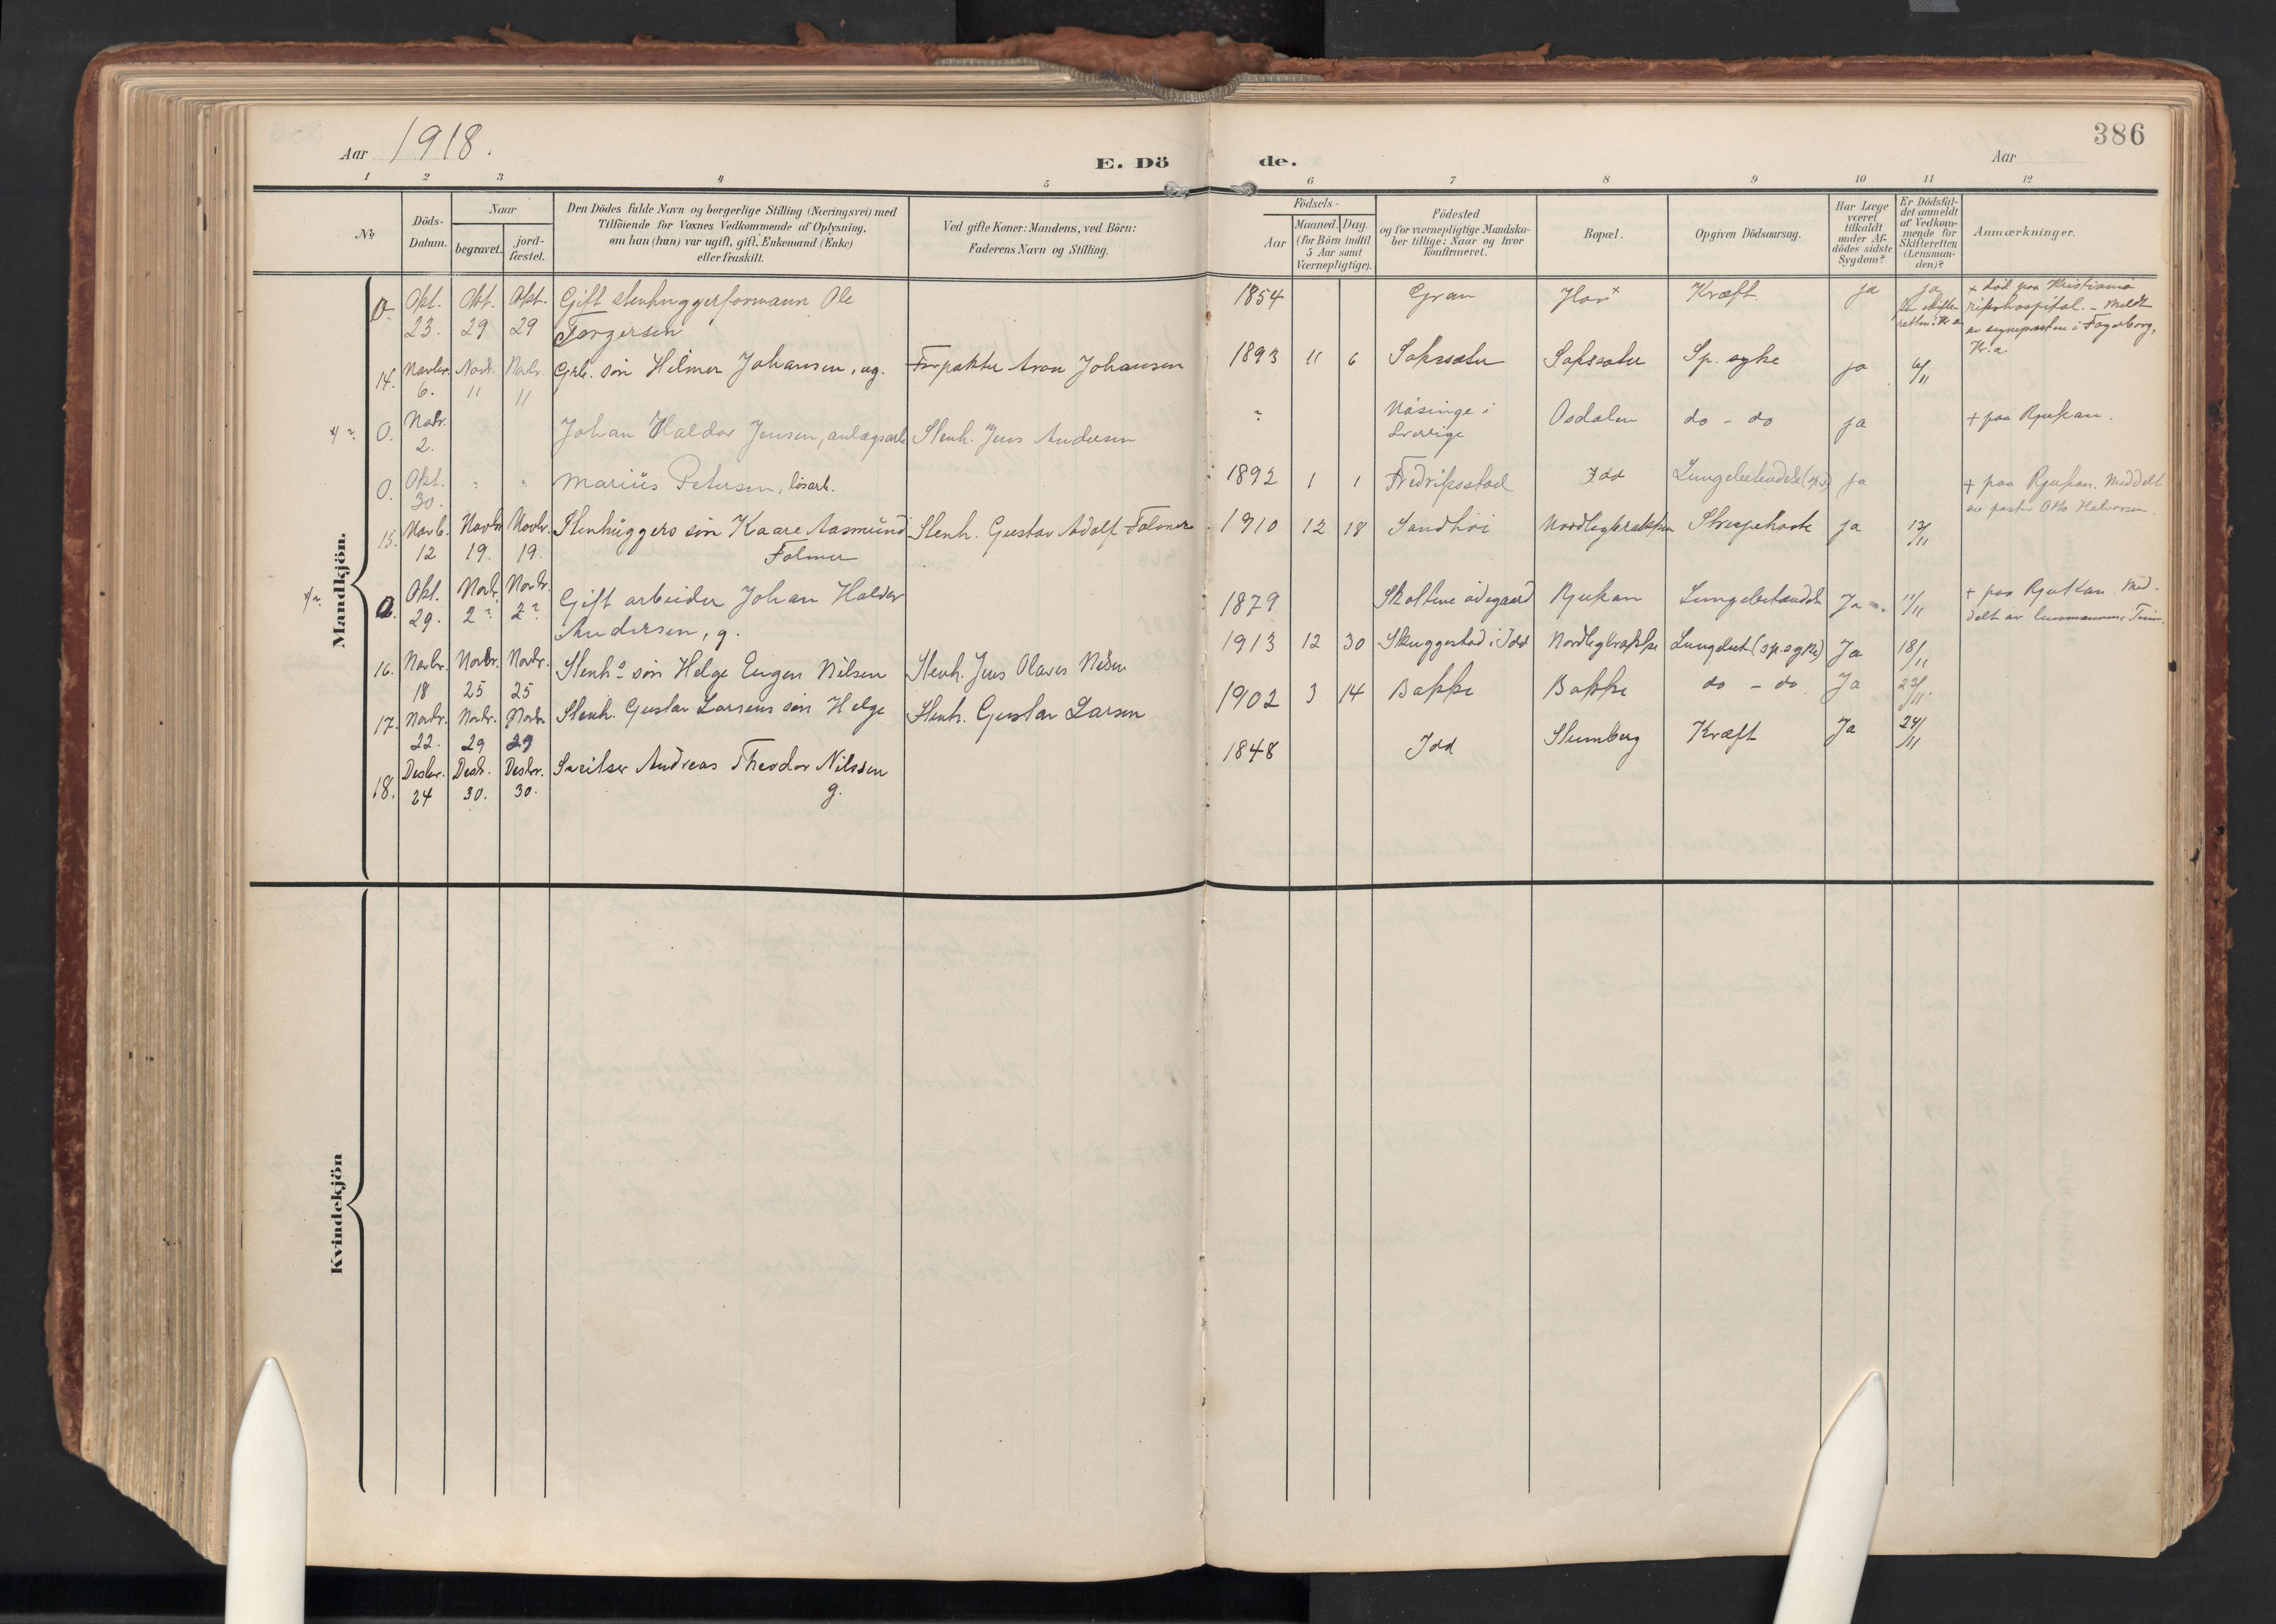 386
Aar 1918.
E. Dö de.
Aar
1 2 3 4 5 6 7 8 9 10 11 12
No
Döds-Datum.
Naar
begravet.
jord-fæstet.
Den Dödes fulde Navn og borgerlige Stilling (Næringsvei) med
Tilföiende for Voxnes Vedkommende af Oplysning,
om han (hun) var ugift, gift, Enkemand (Enke)
eller fraskilt.
Ved gifte Koner: Mandens, ved Börn:
Faderens Navn og Stilling.
Födsels-
Aar
Maaned. Dag.
(for Börn indtil
5 Aar samt
Værnepligtige).
Födested
og for værnepligtige Mandska-
ber tillige: Naar og hvor
konfirmeret.
Bopæl.
Opgiven Dödsaarsag.
Har Læge
været
tilkaldt
under Af-
dödes sidste
Sygdom?
Er Dödsfal-
det anmeldt
af Vedkom-
mende for
Skifteretten
(Lensman-
den)?
Anmærkninger.
Mandkjön.
0. Okt. 23. Okt. 29 Okt. 29 Gift stenhuggerformann Ole
Torgersen
1854 Gran Kræft ja ja
+ död paa Kristiania
rikshospital. - Meldt
av sogneprsten i Fagerborg,
Kr.a.
14. Novbr. 6. Novbr. 11 Novbr. 11 Grb. sön Helmer Johansen, ug. Forpakter Aron Johansen 1893 11 6 Sp. syke ja 6/11
0. Novbr. 2. Johan Haldor Jensen, anlægsarb. Stenh. Jens Andersen ~ Näsinge i
Sverige Osdalen do - do ja + paa Rjukan.
0. Okt. 30. " " Marius Petersen, lösarb. 1892 1 1 Fredriksstad Idd Lungebetændelse (sp.s) ja + paa Rjukan. Meddelt
av pastor Otto Halvorsen.
15. Novb. 12 Novbr 19. Novbr. 19. Stenhuggers sön Kaare Aasmund
Folmer Stenh. Gustav Adolf Folmer 1910 12 18 Sandhöi Nordlegbrakken Strupehoste ja 13/11
0. Okt. 29. Novbr. 2? Novbr. 2? Gift arbeider Johan Haldor
Andersen, g. 1879 Skolleve ödegaard Rjukan Lungebetændelse Ja 11/11 + paa Rjukan. Med-
delt av lensmannen i Tinn.
16. Novbr. 18 Novbr. 25 Novbr. 25 Stenhs sön Helge Eugen Nilsen Stenh. Jens Olaves Nilsen 1913 12 30 Skuggestad i Idd Nordlegbrakke Lungebet. (sp.syke) Ja 18/11
17. Novbr. 22. Novbr. 29 Novbr 29 Stenh. Gustav Larsens sön Helge Stenh. Gustav Larsen 1902 3 14 Bakke Bakke do - do Ja 23/11
18. Desbr. 24 Desb. 30. Desbr. 30. Andreas Theodor Nilssen
g. 1848 Idd Stumberg Kræft Ja 24/11
Kvindekjön